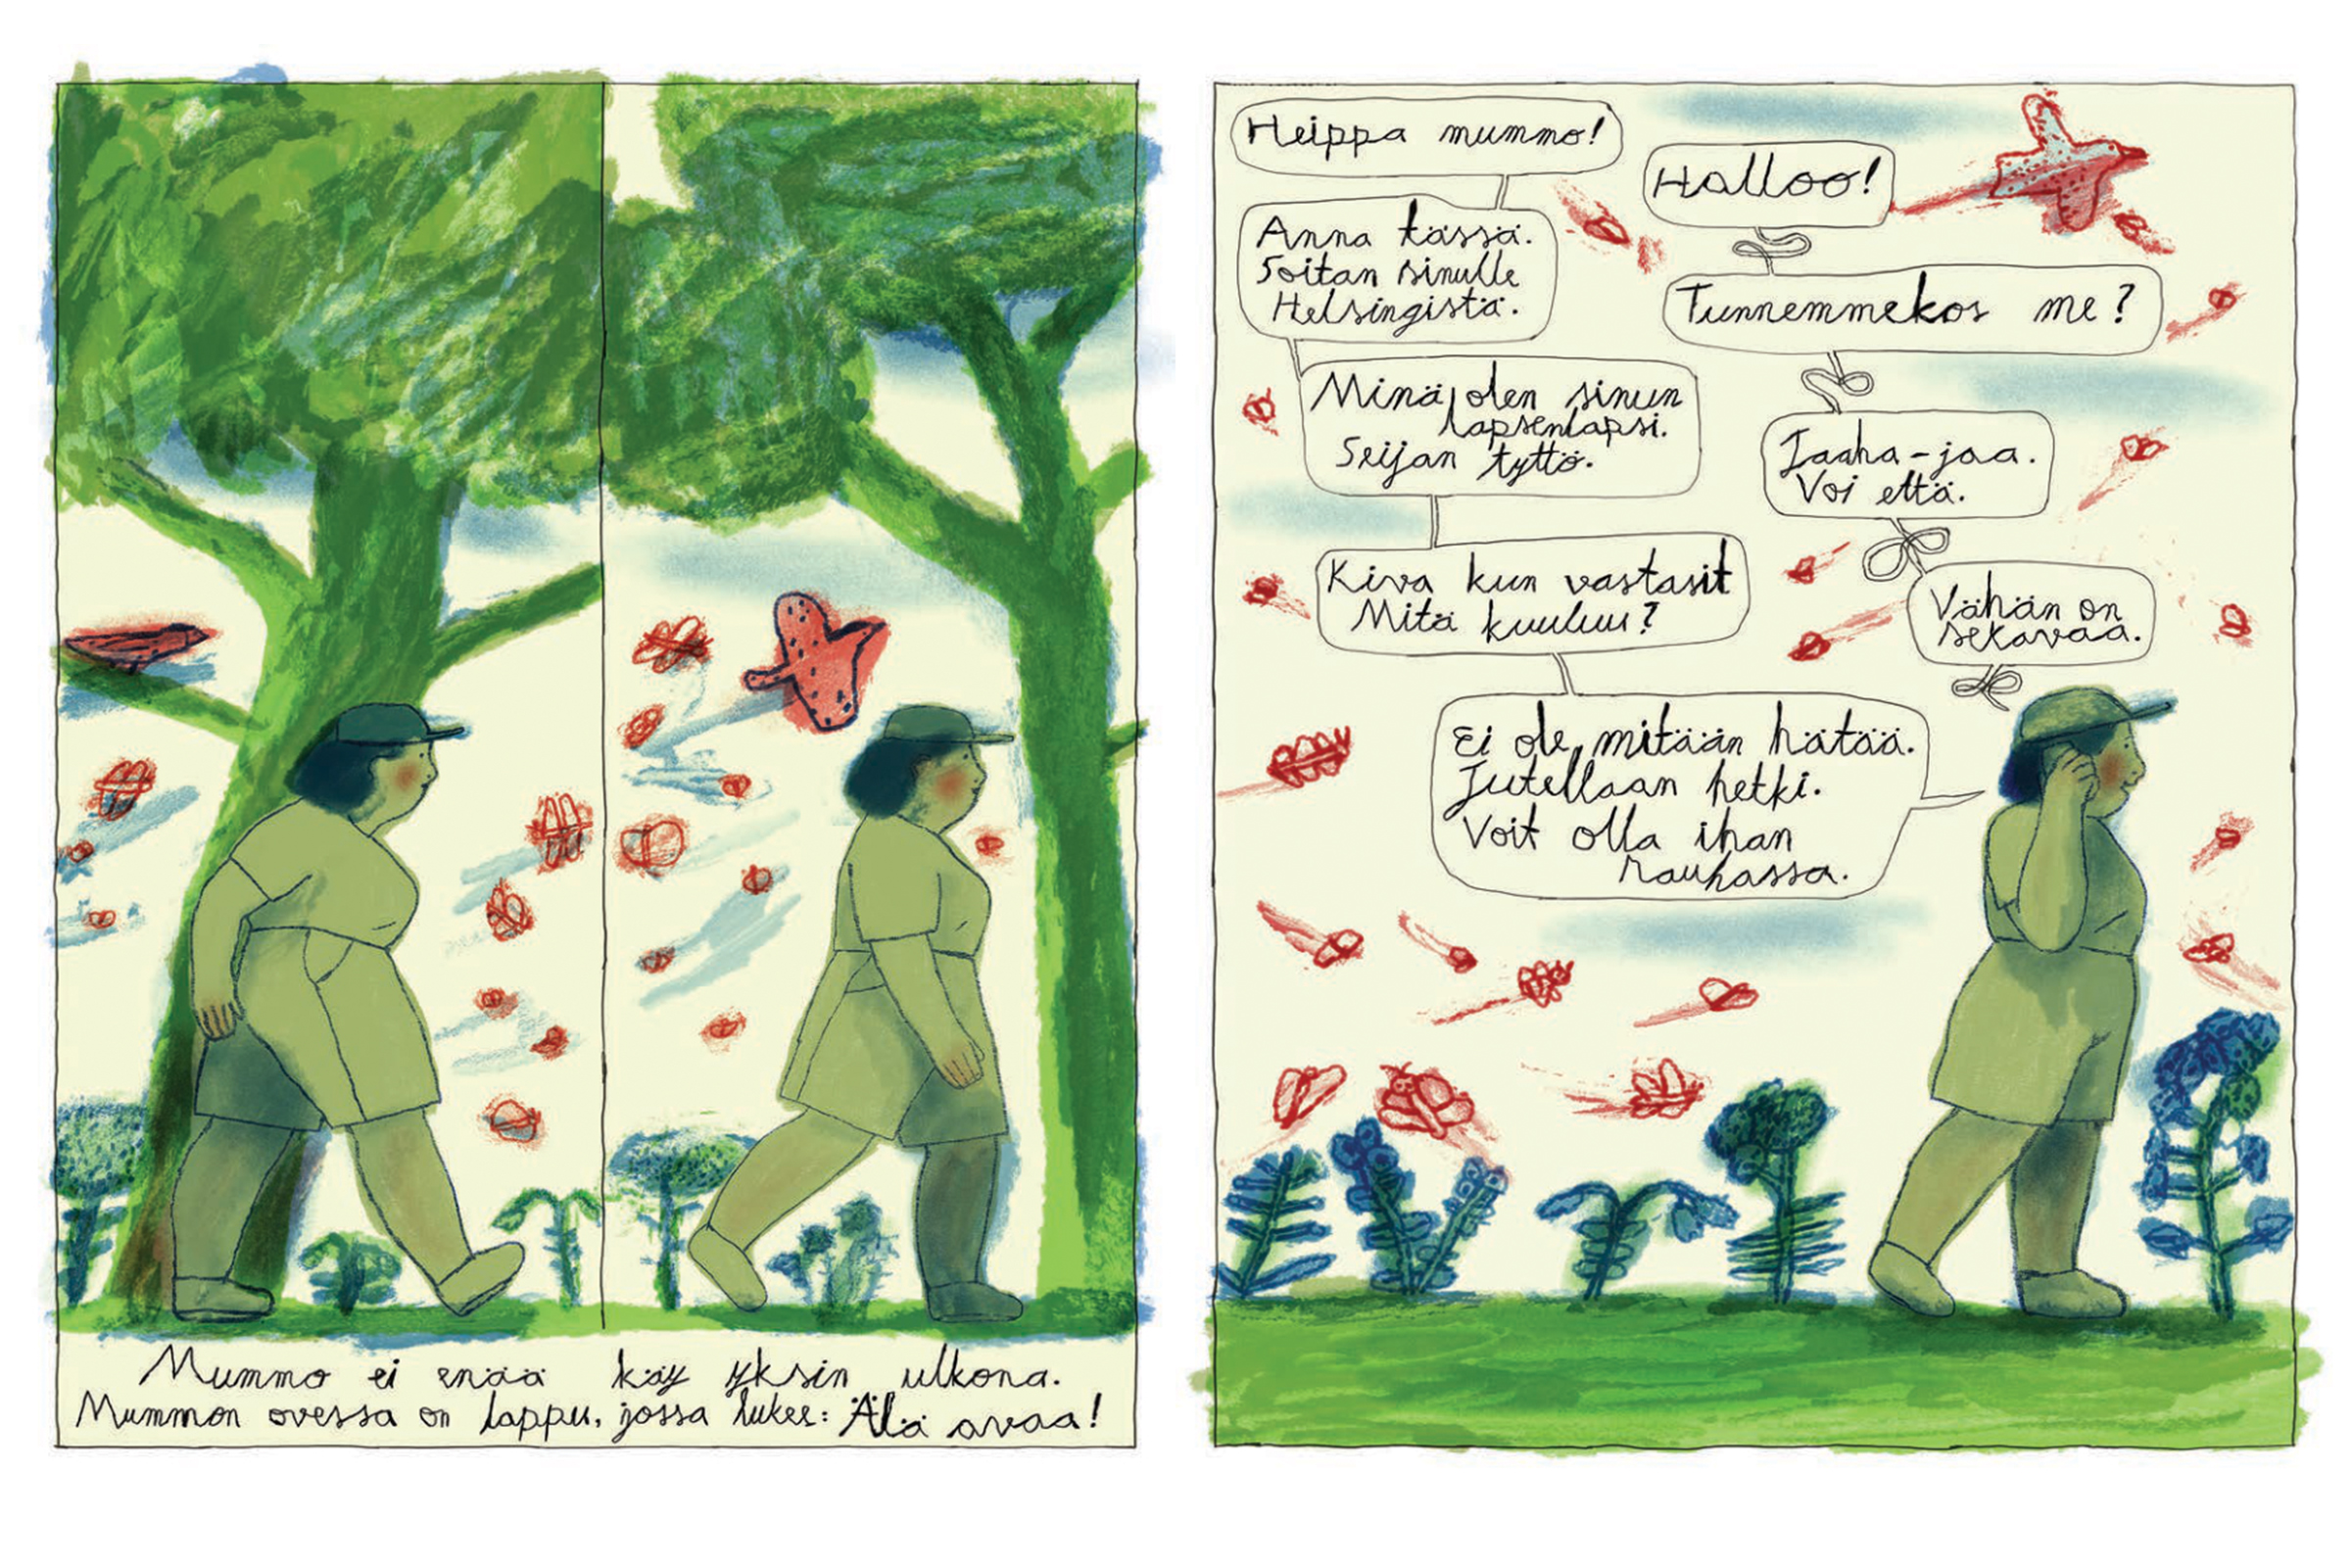 Mummo ei enää käy yksin ulkona.
Mummon ovessa on lappu, jossa lukee: Älä avaa!
Heippa mummo!
Halloo!
Anna tässä.
Soitan sinulle
Helsingistä.
Tunnemmekos me?
Minä olen sinun
lapsenlapsi.
Seijan tyttö.
Jaaha-jaa.
Voi että.
Kiva kun vastasit
Mitä kuuluu?
Vähän on
sekavaa.
Ei ole mitään hätää.
Jutellaan hetki.
Voit olla ihan
rauhassa.